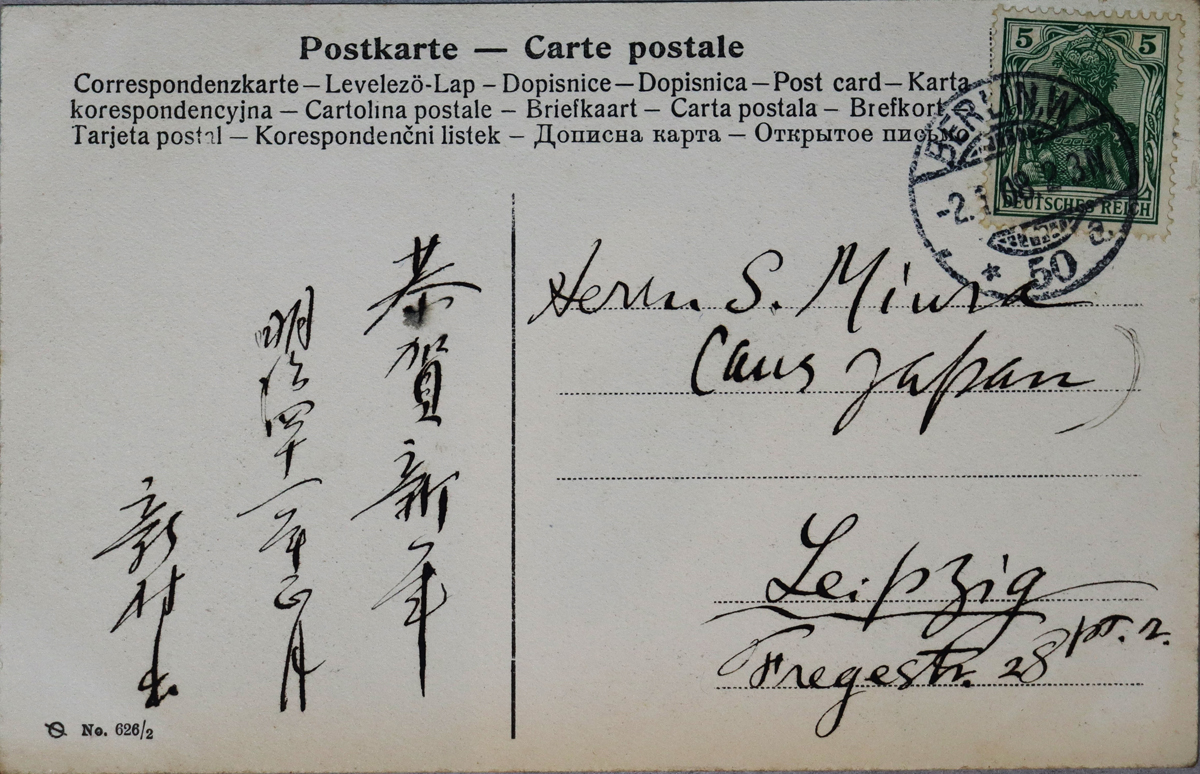 Postkarte — Carte postale
Correspondenzkarte – Levelező-Lap – Dopisnice – Dopisnica – Post card – Karta
korespondencyjna – Cartolina postale – Briefkaart – Carta postala – Brefkort
Tarjeta postal – Korespondenčni listek – Дописна карта – Открытое письмо
5 5
DEUTSCHES REICH
BERLIN.W
-2.1.08.2-3N
* 50 a.
恭賀新年
明治四十一年正月
新村出
Herrn S. Miura
(aus Japan)
Leipzig
Fregestr. 28 pt. r.
No. 626/2